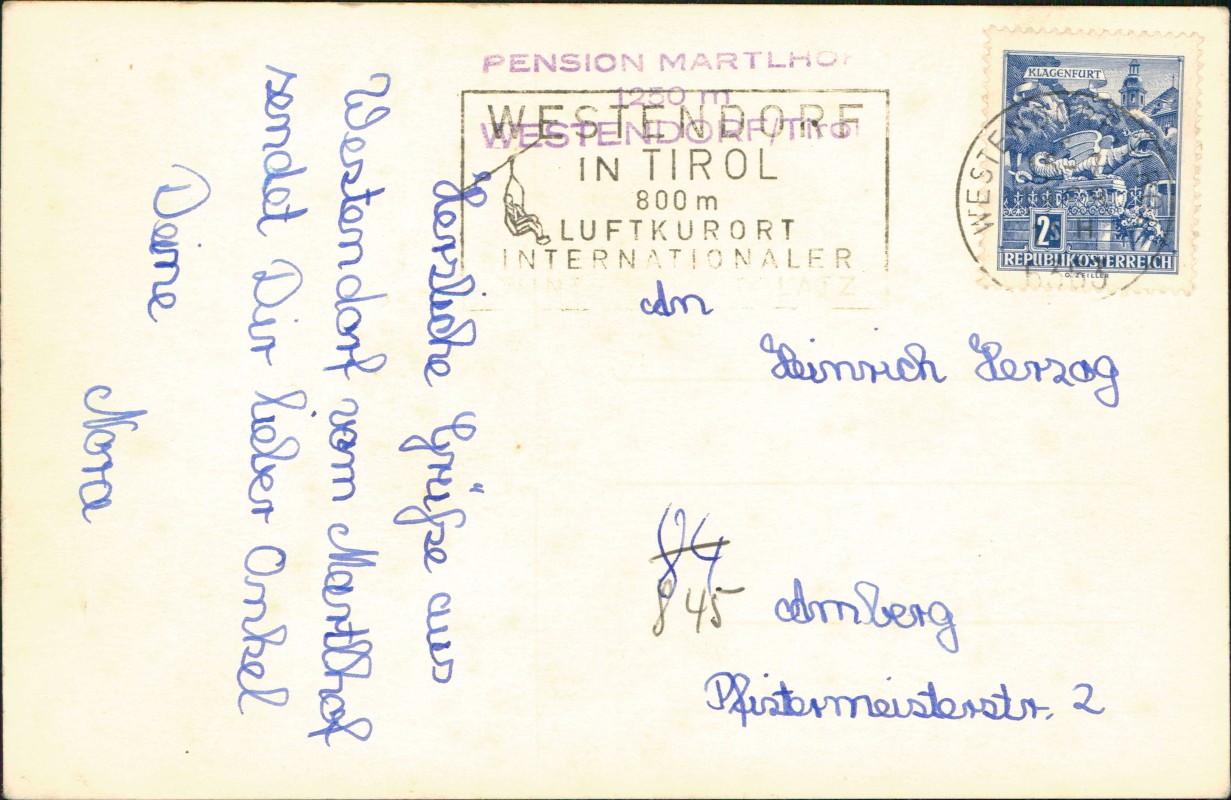 PENSION MARTLHOF
1250 m
WESTENDORF/Tirol
WESTENDORF
IN TIROL
800 m
LUFTKURORT
INTERNATIONALER
KLAGENFURT
2S
REPUBLIK ÖSTERREICH
O. ZEILLER
WESTEN
H
Herzliche Grüße aus
Westendorf vom Martlhof
sendet Dir lieber Onkel
Deine
Nora
An
Heinrich Herzog
84
845 Amberg
Pfistermeisterstr. 2